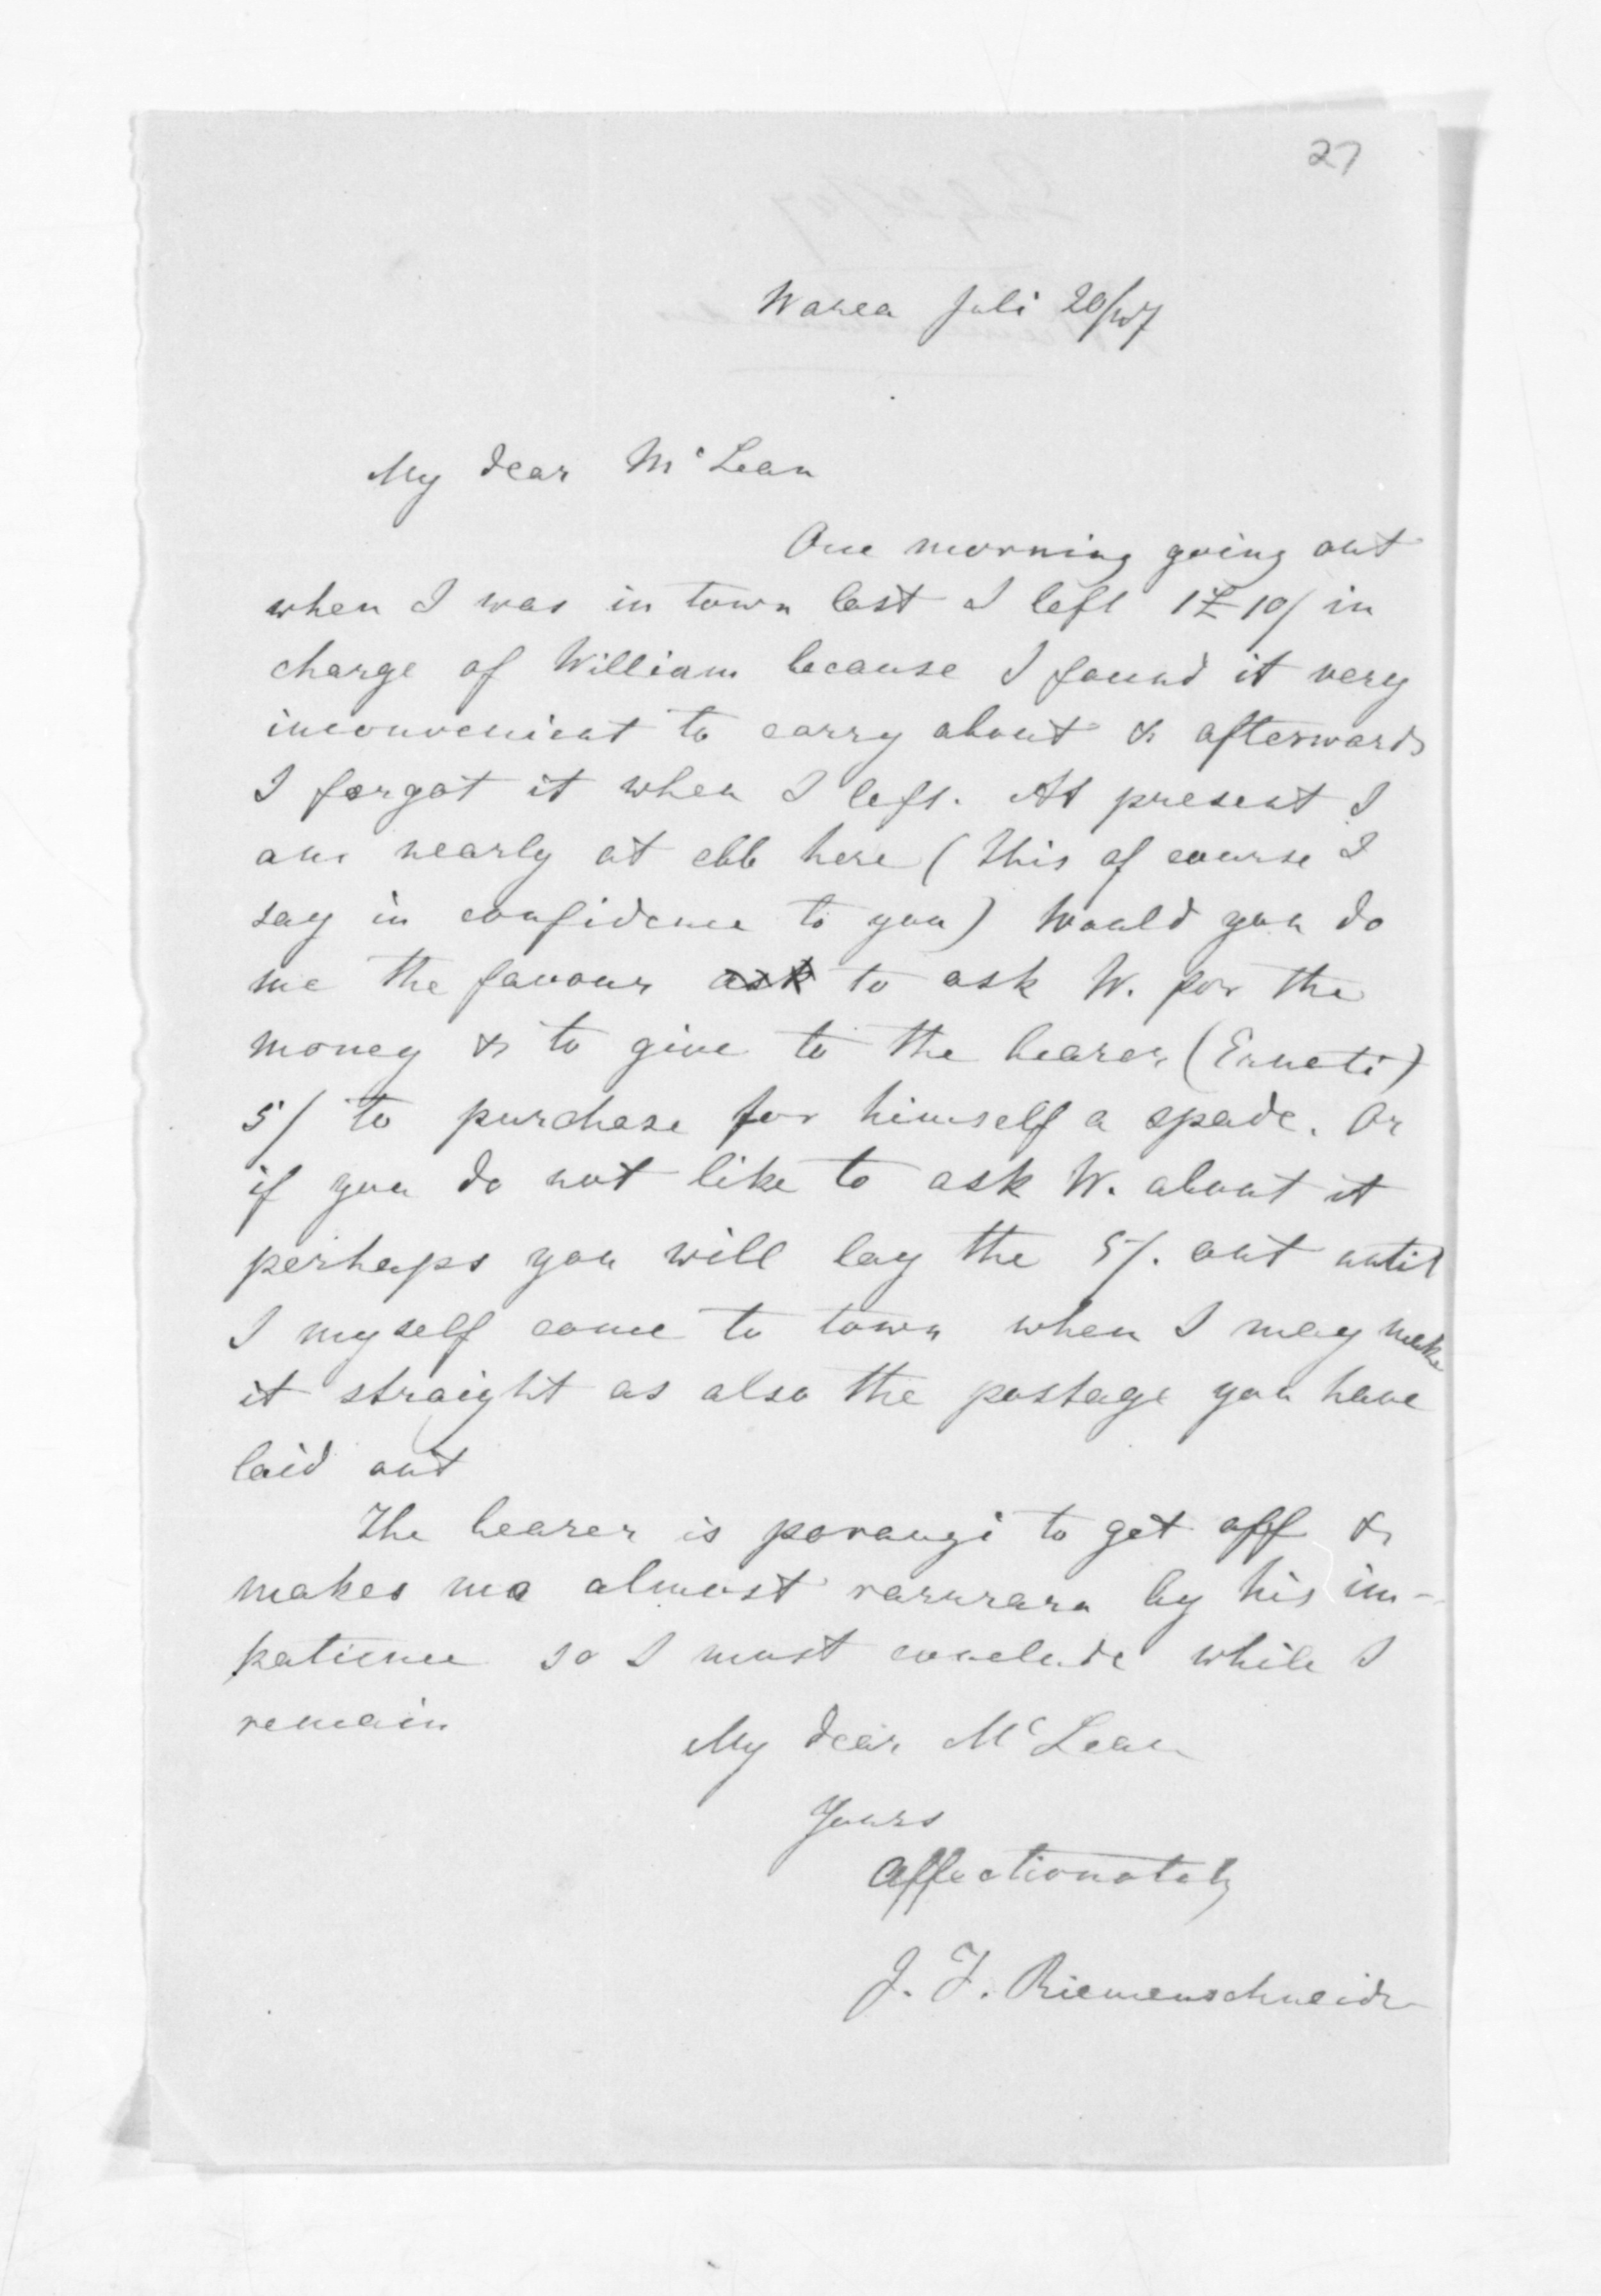 27
Warea Juli 20/47
My dear McLean
One morning going out
when I was in town last I left 1£ 10/ in
charge of William because I found it very
inconvenient to carry about & afterwards
I forgot it when I left. At present I
am nearly at ebb here (this of course I
say in confidence to you) Would you do
me the favour ask to ask W. for the
money & to give to the bearer (Erueti)
5/ to purchase for himself a spade. Or
if you do not like to ask W. about it
perhaps you will lay the 5/. out until
I myself come to town when I may make
it straight as also the postage you have
laid out
The bearer is porangi to get off &
makes me almost raruraru by his im-
patience so I must conclude while I
remain
My dear McLean
Yours
affectionately
J. F. Riemenschneider